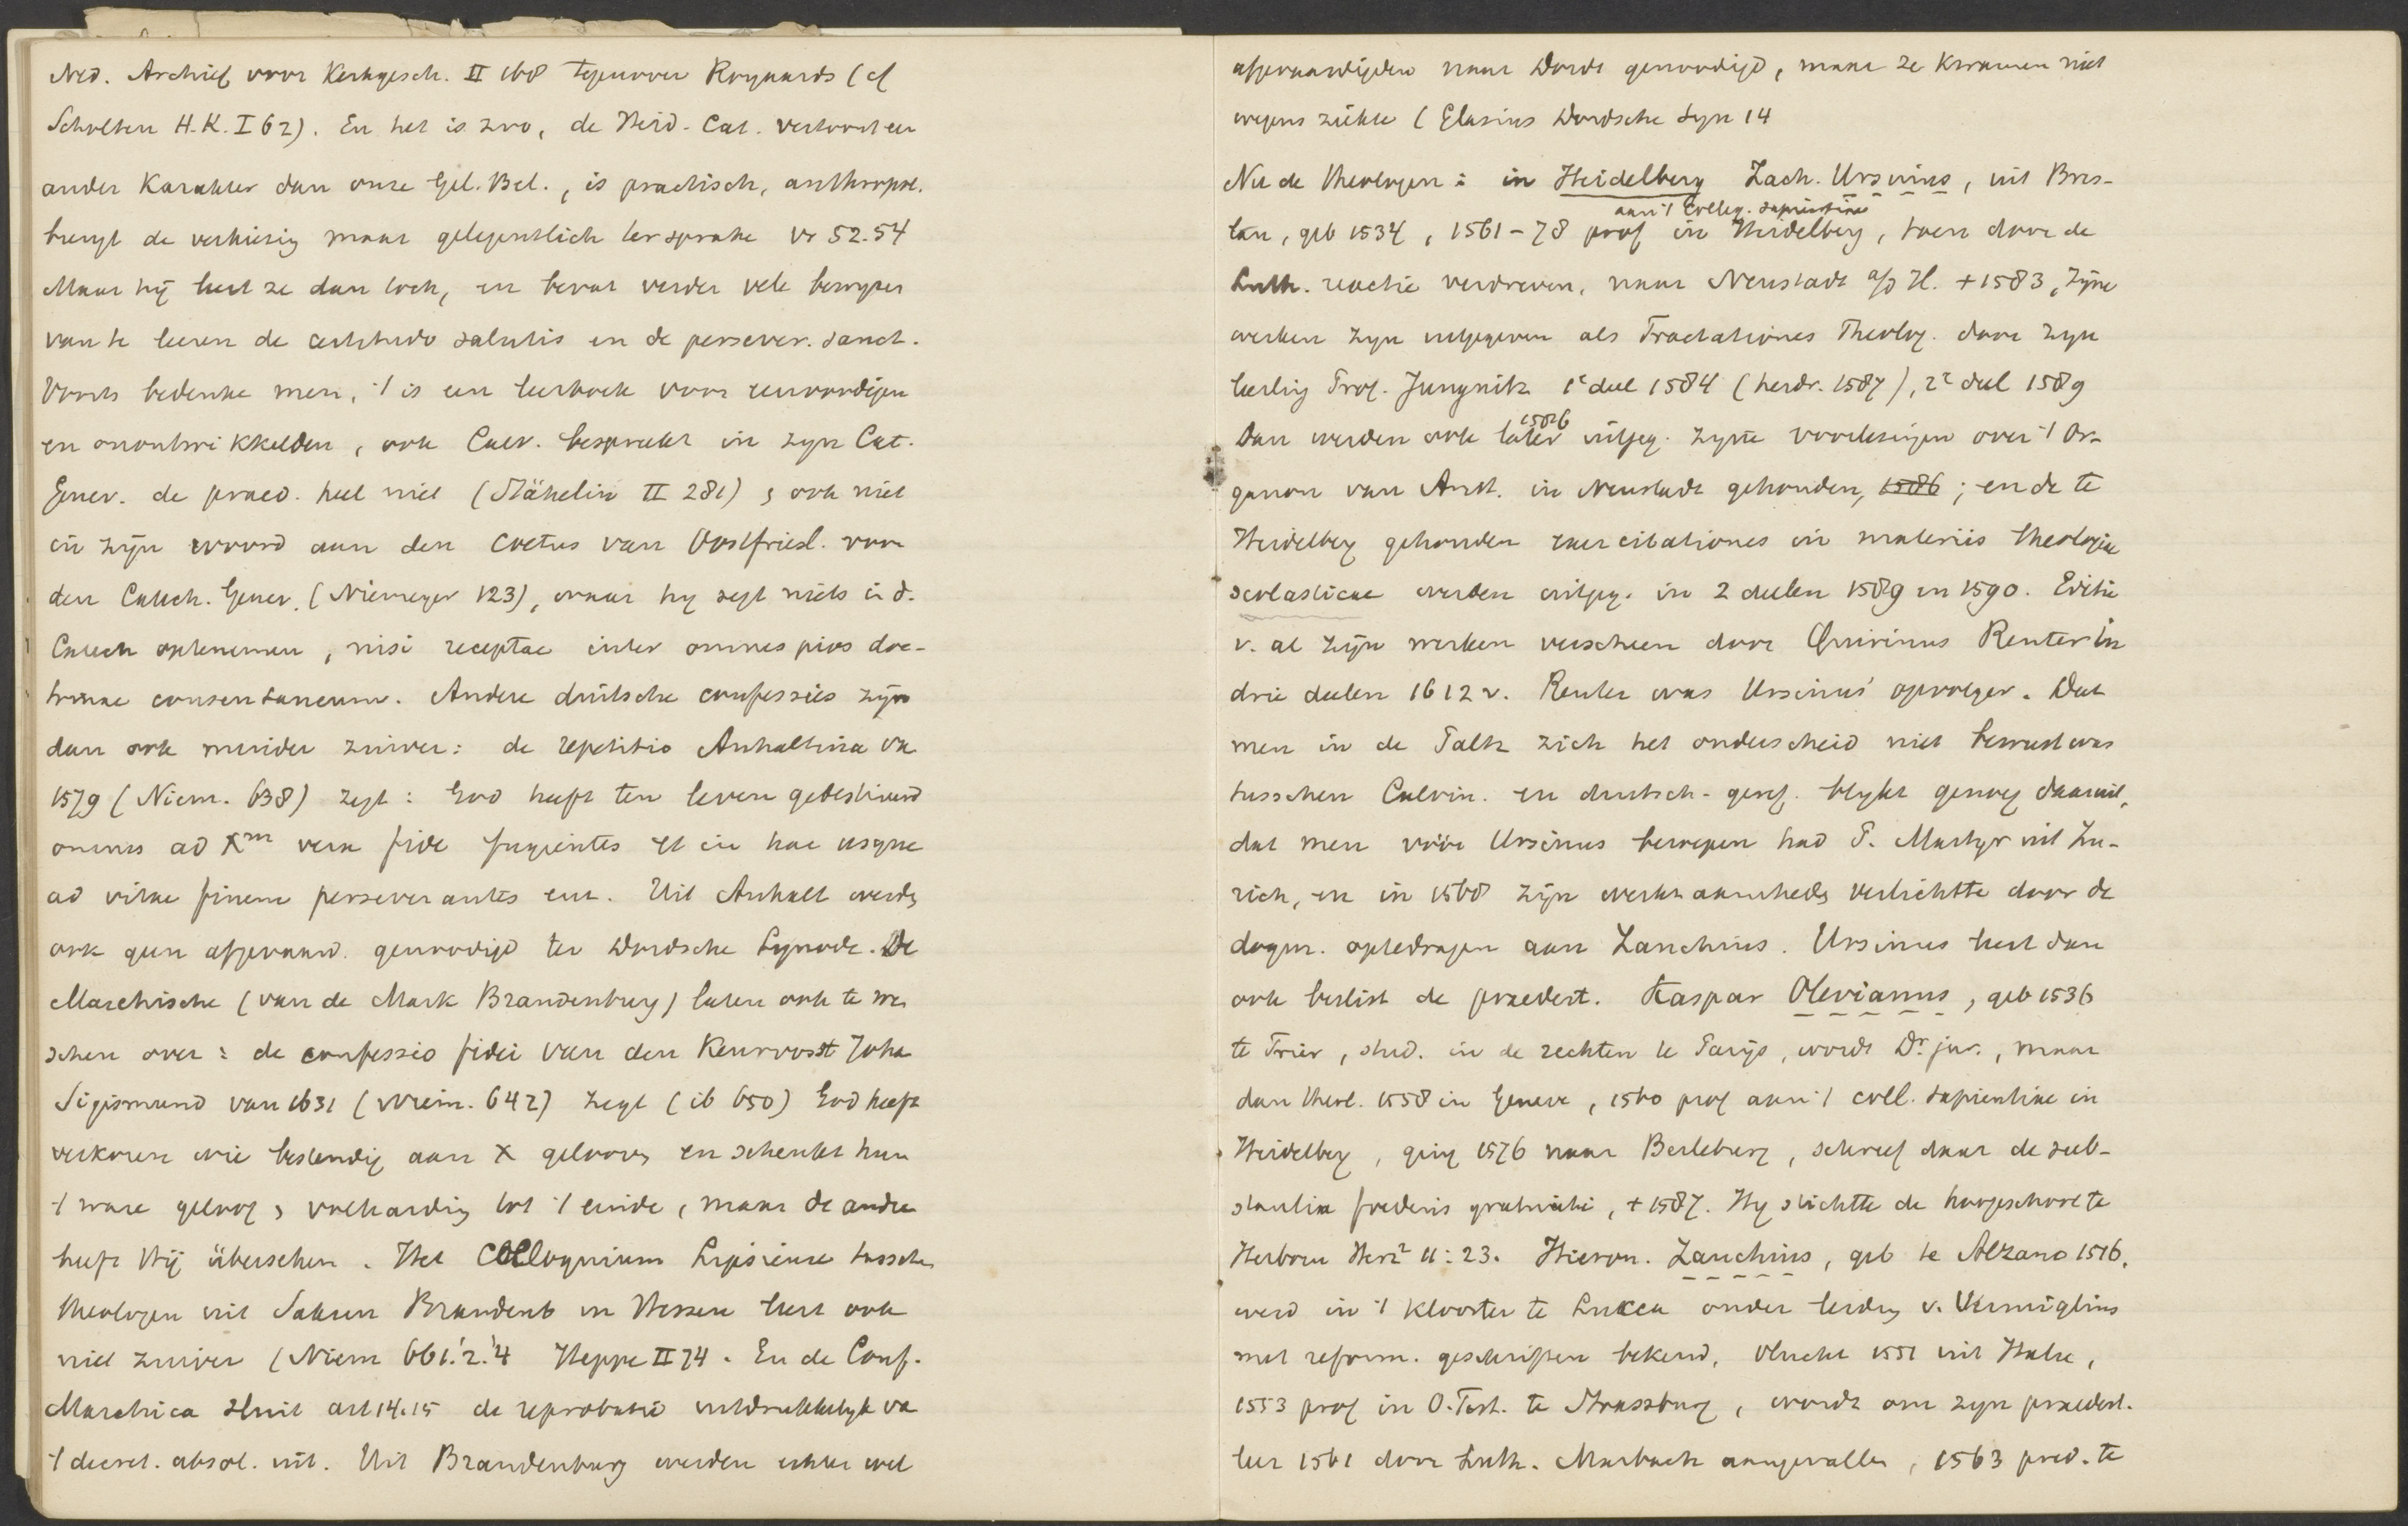 Ned. Archief voor Kerkgesch. II 168 tegenover Royaards (cf
Scholten H.K. I 62). En het is zoo, de Heid. Cat. vertoont een
ander karakter dan onze Gel. Bel., is practisch, anthropol.
brengt de verkiezing maar gelegentlich ter sprake vr 52.54
Maar hij leert ze dan toch, en bevat verder vele bewijzen
van te leeren de certitudo salutis en de persever. sanct.
Voorts bedenke men, 't is een leerboek voor eenvoudigen
en onontwikkelden, ook Calv. bespreekt in zijn Cat.
Genev. de praed. heel niet (Stähelin II 281), ook niet
in zijn woord aan den Coetus van Oostfriesl. voor
den Catech. Genev. (Niemeyer 123), waar hij zegt niets in d.
Catech optenemen, nisi receptae inter omnes pios doc-
trinae consentaneum. Andere duitsche confessies zijn
dan ook minder zuiver: de repetitio Anhaltina va
1579 (Niem. 638) zegt: God heeft ten leven gedestineerd
omnes ad Xm vera fide fugientes et in hac usque
ad vitae finem perseverantes enz. Uit Anhalt werde
ook geen afgevaard. genoodigd ter Dordsche Synode. De
Marchische (van de Mark Brandenburg) laten ook te we
schen over: de confessio fidei van den Keurvorst Joha
Sigismund van 1631 (Niem. 642) zegt (ib 650) God heeft
verkoren wie bestendig aan X gelooven en schenkt hun
't ware geloof & volharding tot 't einde, maar de andre
heeft Hij übersehen. Het Colloquium Lipsiense tussche
theologen uit Saksen Brandenb en Hessen leert ook
niet zuiver (Niem 661.'2.'4 Heppe II 74. En de Conf.
Marchica sluit art 14.15 de reprobatie uitdrukkelijk va
't decret. absol. uit. Uit Brandenburg werden echter wel
afgevaardigden naar Dordt genoodigd, maar ze kwamen niet
wegens ziekte (Glasius Dordsche Syn 14
Nu de theologen: in Heidelberg Zach. Ursinus, uit Bres-
aan 't Colleg. sapientiae
lau, geb 1534, 1561-78 prof in Heidelberg, toen door de
Luth. reactie verdreven, naar Neustadt a/d H. + 1583, Zijne
werken zijn uitgegeven als Tractationes Theolog. door zijn
leerling Prof. Jungnitz 1e deel 1584 (herdr. 1587), 2e deel 1589
1586
Dan werden ook later uitgeg. zijne voorlezingen over 't Or-
ganon van Arist. in Neustadt gehouden, 1586; en de te
Heidelberg gehouden exercitationes in materiis theologiae
scolasticae werden uitgeg. in 2 deelen 1589 en 1590. Editie
v. al zijn werken verscheen door Quirinus Reuter in
drie deelen 1612 v. Reuter was Ursinus' opvolger. Dat
men in de Paltz zich het onderscheid niet bewust was
tusschen Calvin. en duitsch-geref. blijkt genoeg daaruit,
dat men vóór Ursinus beroepen had P. Martyr uit Zu-
rich, en in 1568 zijn werkzaamheden verlichtte door de
dogm. optedragen aan Zanchius. Ursinus leert dan
ook beslist de praedest. Kaspar Olevianus, geb 1536
te Trier, stud. in de rechten te Parijs, wordt Dr. jur., maar
dan theol. 1558 in Geneve, 1560 prof aan 't coll. sapientiae in
Heidelberg, ging 1576 naar Berleburg, schreef daar de sub-
stantia foederis gratuiti, + 1587. Hij stichtte de hoogeschool te
Herborn Herz2 11:23. Hieron. Zanchius, geb te Alzano 1516,
werd in 't klooster te Lucca onder leiding v. Vermiglius
met reform. geschriften bekend, vlucht 1551 uit Italie,
1553 prof in O. Test. te Strassburg, wordt om zijn praedest.
leer 1561 door Luth. Marbach aangevallen, 1563 pred. te